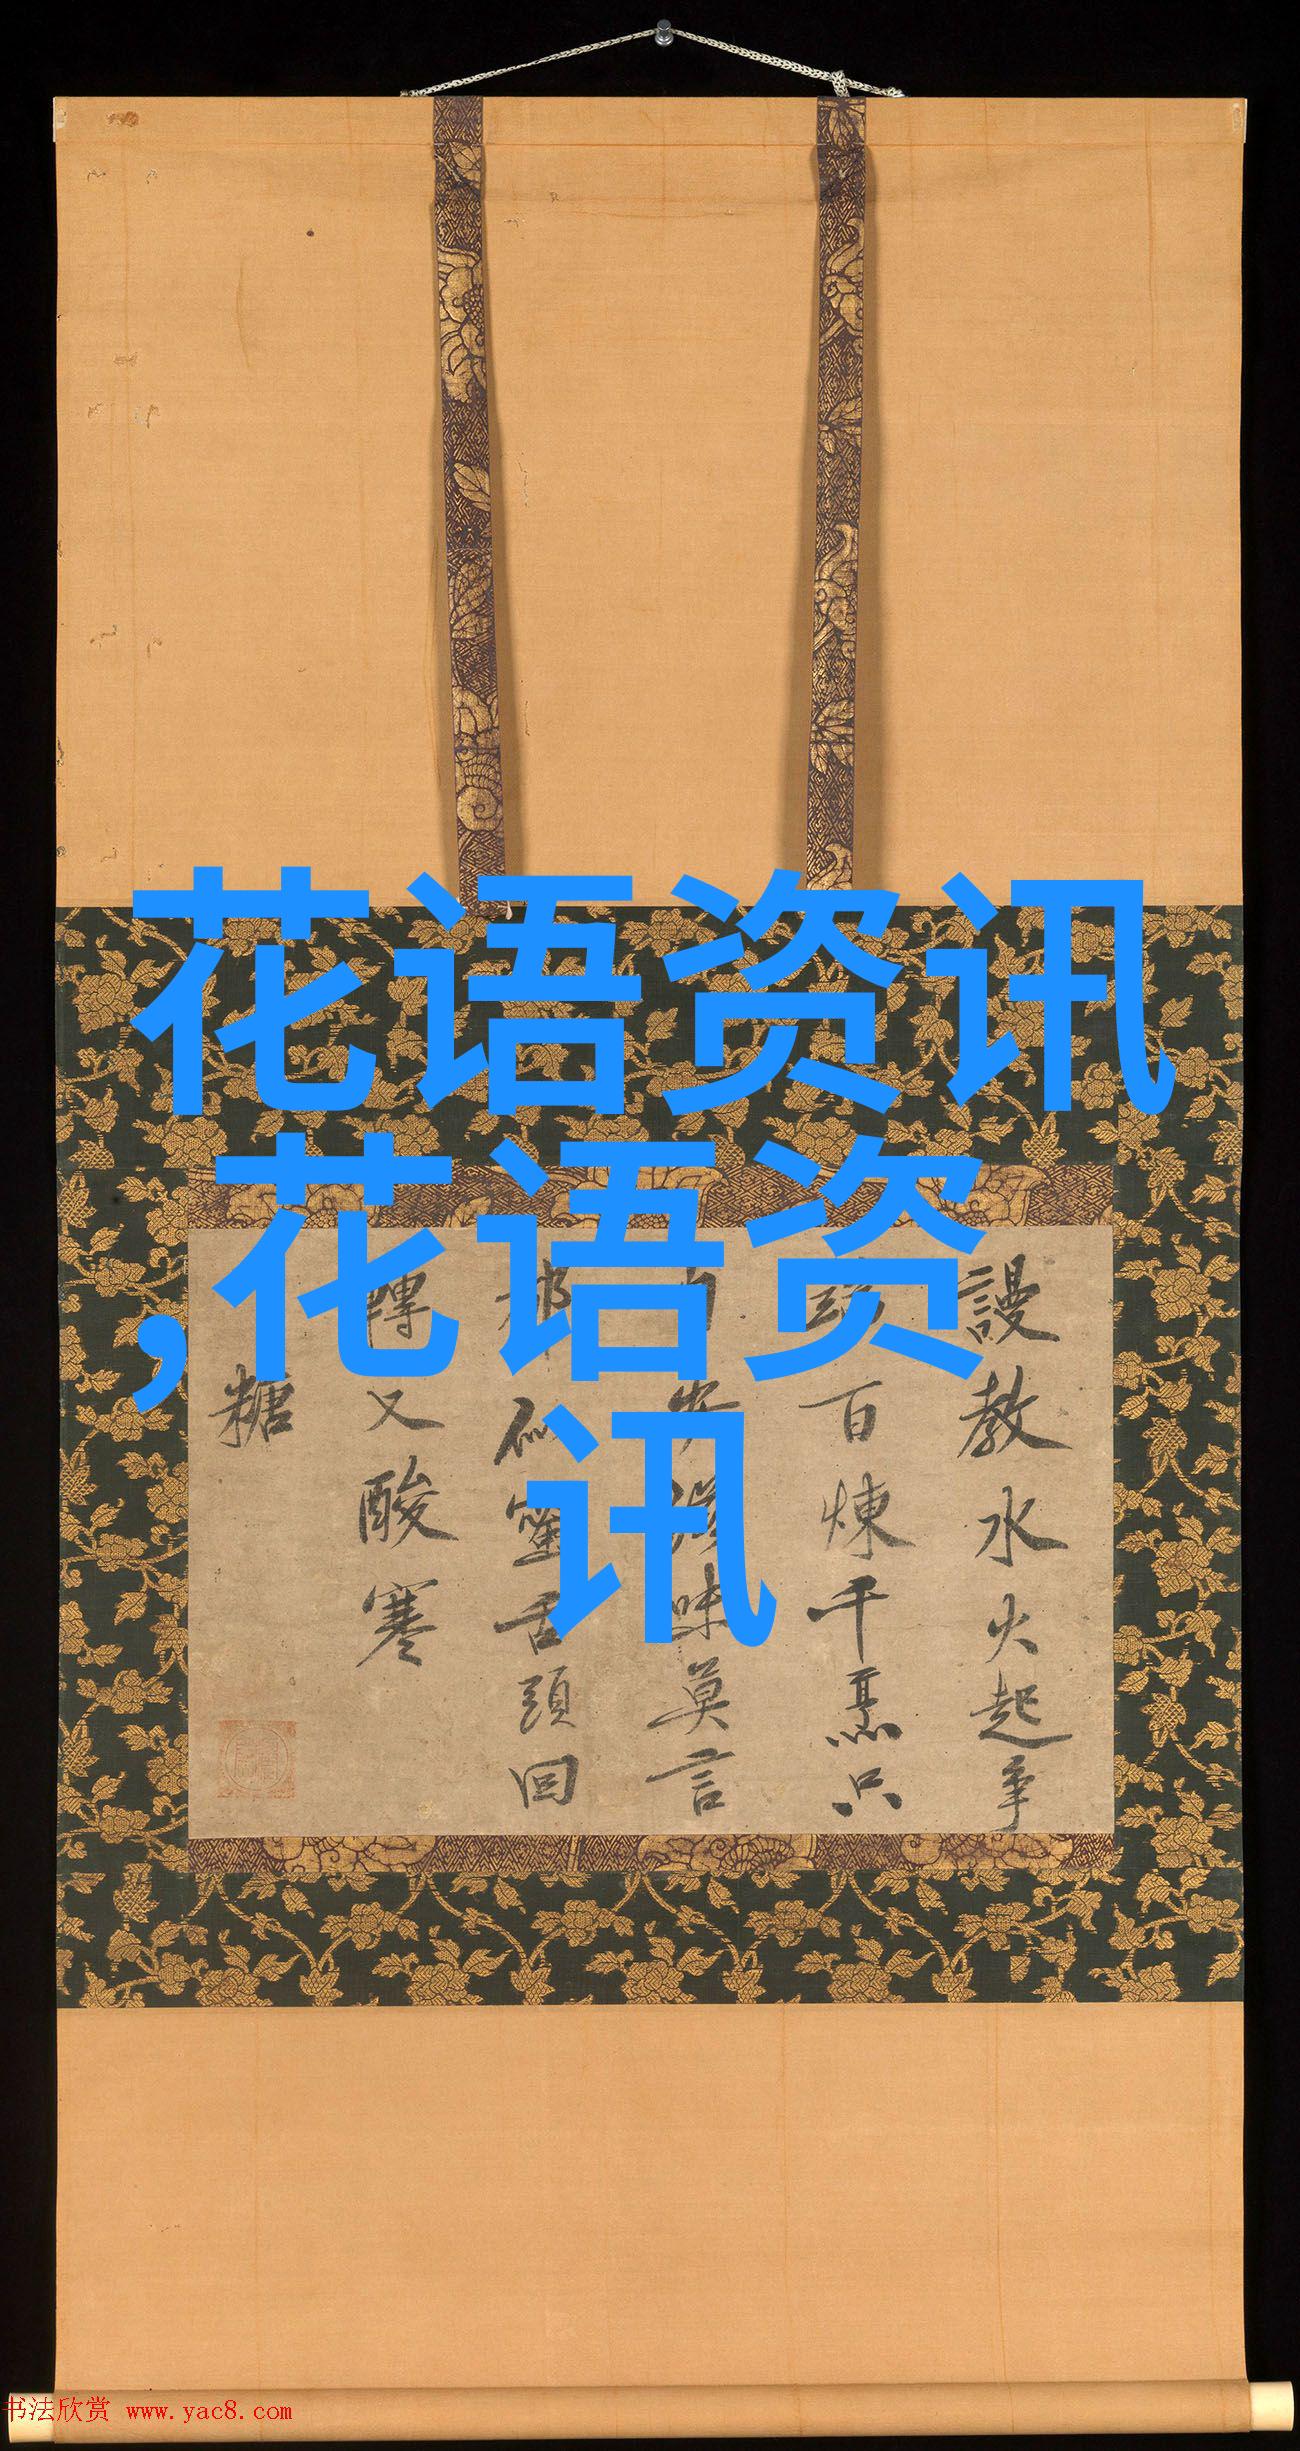 花语资讯
,花语资
讯
謾教水火起爭
百煉千烹只
味莫言
蜜舌頭回
轉又酸寒
糖
书法欣赏 www.yac8.com